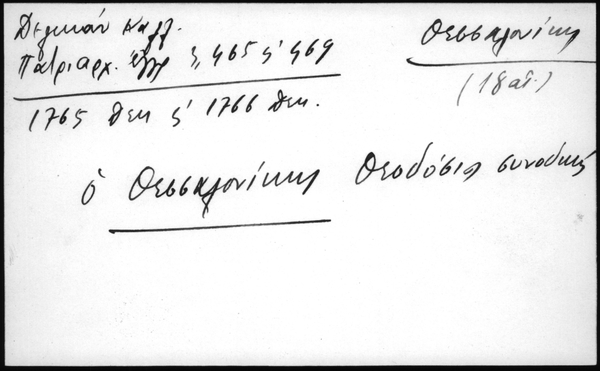 Δελικάν Καλλ.
Πατριαρχ. Έγγρ 3, 465 κ' 469
1765 Δεκ κ' 1766 Δεκ.
Θεσσαλονίκης
(18 αι.)
ὁ Θεσσαλονίκης Θεοδόσιος συνοδικός